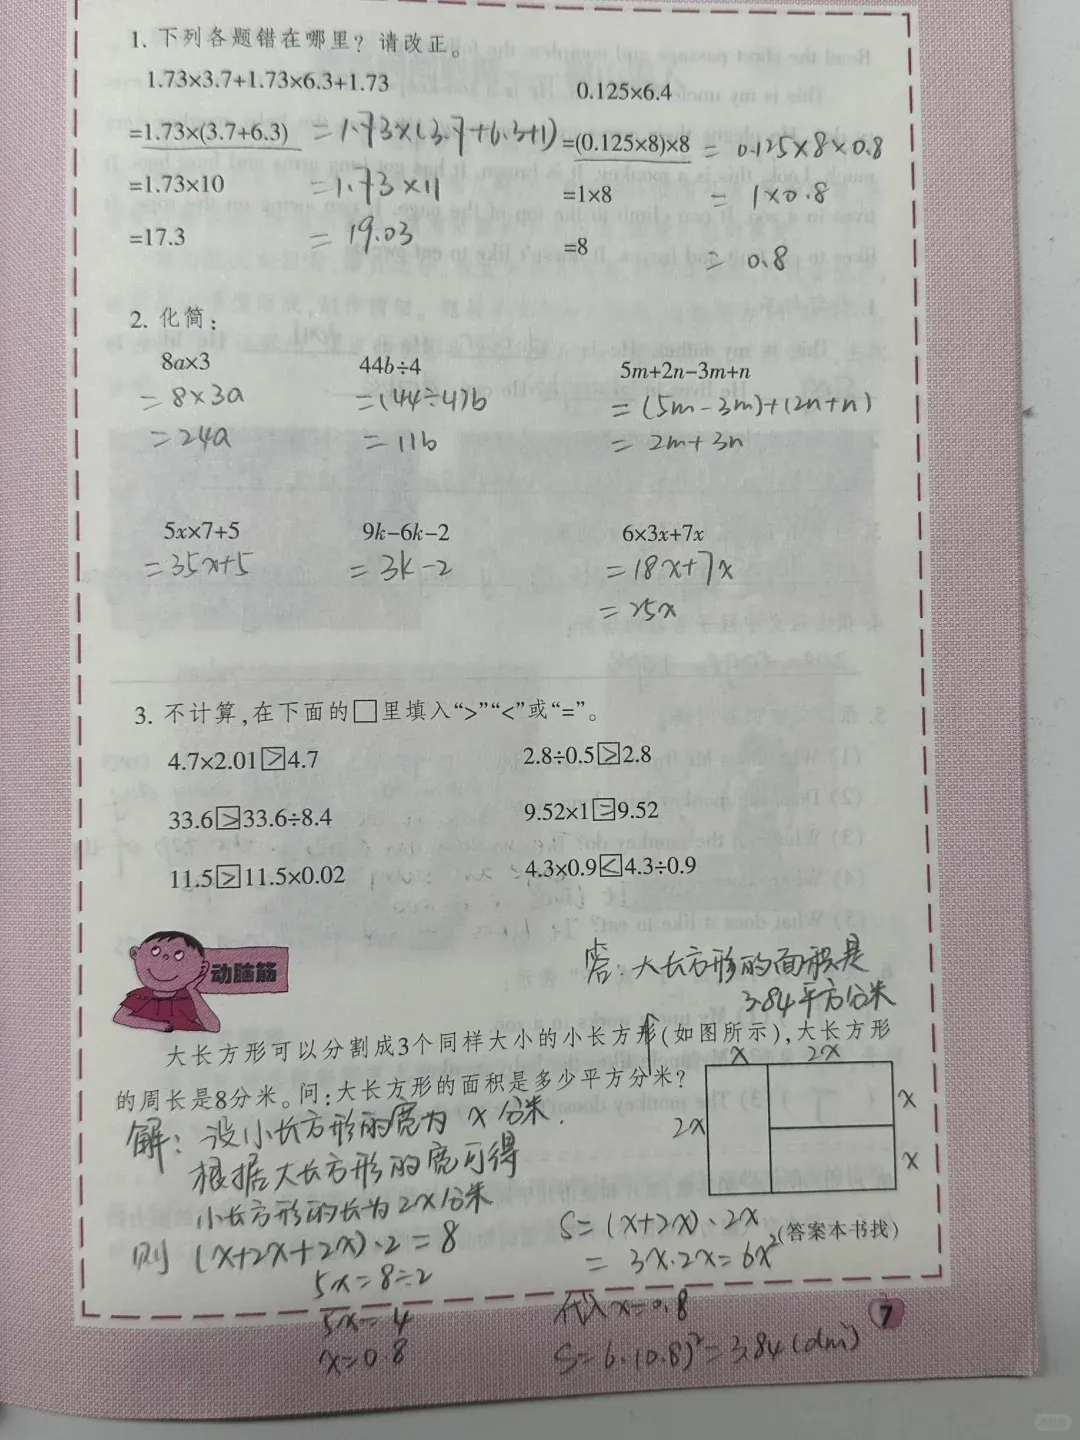 1. 下列各题错在哪里？请改正。
1.73×3.7+1.73×6.3+1.73
=1.73×(3.7+6.3) =1.73×(3.7+6.3+1)
=1.73×10 =1.73×11
=17.3 = 19.03
0.125×6.4
=(0.125×8)×8 = 0.125×8×0.8
=1×8 = 1×0.8
=8 = 0.8
2. 化简：
8a×3 44b÷4 5m+2n-3m+n
=8×3a =(44÷4)b =(5m-3m)+(2n+n)
=24a =11b = 2m+3n
5x×7+5 9k-6k-2 6×3x+7x
=35x+5 = 3k-2 =18x+7x
=25x
3. 不计算,在下面的□里填入“>”“<”或“=”。
4.7×2.01>4.7 2.8÷0.5>2.8
33.6>33.6÷8.4 9.52×1=9.52
11.5>11.5×0.02 4.3×0.9<4.3÷0.9
动脑筋
答：大长方形的面积是
3.84平方分米
大长方形可以分割成3个同样大小的小长方形(如图所示),大长方形
的周长是8分米。问:大长方形的面积是多少平方分米?
x 2x
2x x
x
解：设小长方形的宽为 x 分米.
根据大长方形的宽可得
小长方形的长为2x分米
则 (x+2x+2x)·2=8
5x=8÷2
5x=4
x=0.8
S=(x+2x)·2x
= 3x·2x=6x²
(答案本书找)
代入x=0.8
S=6·(0.8)²=3.84(dm²)
7